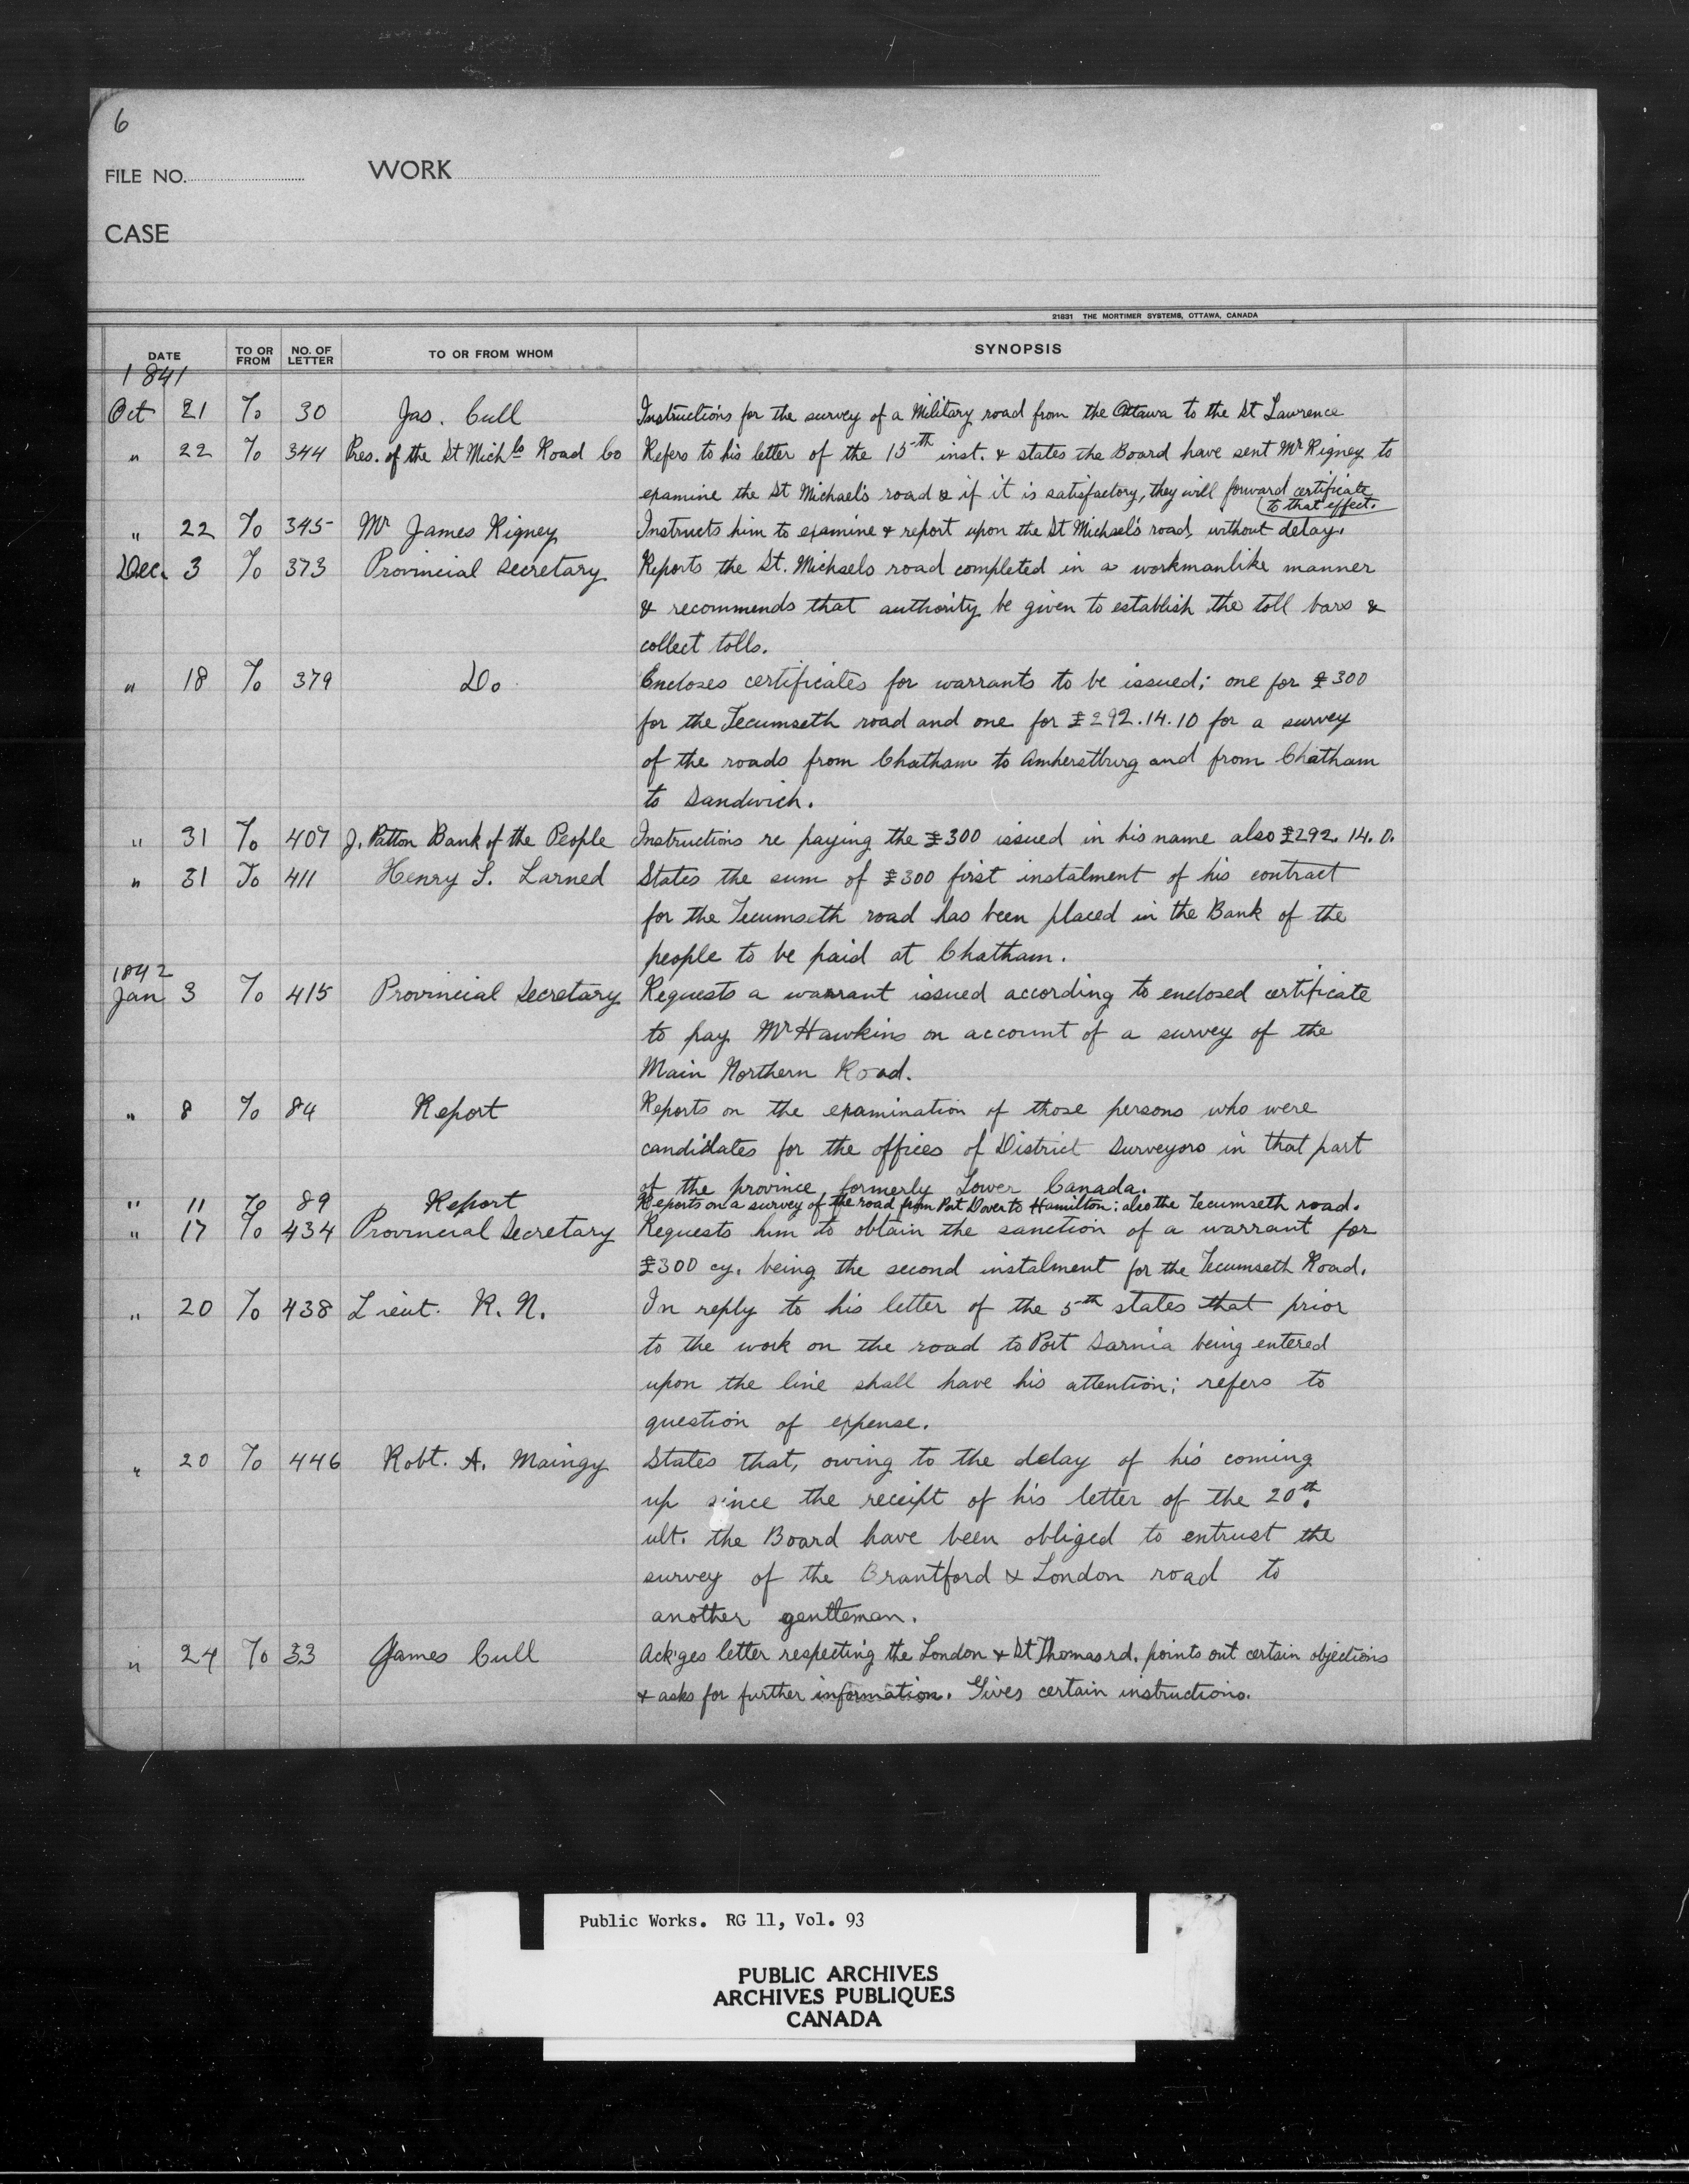 6
FILE NO. WORK
CASE
21831 THE MORTIMER SYSTEMS, OTTAWA, CANADA
DATE TO OR FROM NO. OF LETTER TO OR FROM WHOM SYNOPSIS
1841
Oct 21 To 30 Jas. Cull Instructions for the survey of a Military road from the Ottawa to the St Lawrence
" 22 To 344 Pres. of the St Michls Road Co Refers to his letter of the 15th inst. & states the Board have sent Mr Rigney to
examine the St Michael's road & if it is satisfactory, they will forward certificate
to that effect.
" 22 To 345 Mr James Rigney Instructs him to examine & report upon the St Michael's road, without delay.
Dec. 3 To 373 Provincial Secretary Reports the St. Michaels road completed in a workmanlike manner
& recommends that authority be given to establish the toll bars &
collect tolls.
" 18 To 379 Do Encloses certificates for warrants to be issued; one for £300
for the Tecumseth road and one for £292.14.10 for a survey
of the roads from Chatham to Amherstburg and from Chatham
to Sandwich.
" 31 To 407 J. Patton Bank of the People Instructions re paying the £300 issued in his name also £292.14.0.
" 31 To 411 Henry S. Larned States the sum of £300 first instalment of his contract
for the Tecumseth road has been placed in the Bank of the
people to be paid at Chatham.
1842
Jan 3 To 415 Provincial Secretary Requests a warrant issued according to enclosed certificate
to pay Mr Hawkins on account of a survey of the
Main Northern Road.
" 8 To 84 Report Reports on the examination of those persons who were
candidates for the offices of District Surveyors in that part
of the province formerly Lower Canada.
" 11 To 89 Report Reports on a survey of the road from Port Dover to Hamilton: also the Tecumseth road.
" 17 To 434 Provincial Secretary Requests him to obtain the sanction of a warrant for
£300 cy. being the second instalment for the Tecumseth Road.
" 20 To 438 Lieut. R. N. In reply to his letter of the 5th states that prior
to the work on the road to Port Sarnia being entered
upon the line shall have his attention; refers to
question of expense.
" 20 To 446 Robt. A. Maingy States that, owing to the delay of his coming
up since the receipt of his letter of the 20th.
ult. the Board have been obliged to entrust the
survey of the Brantford & London road to
another gentleman.
" 24 To 33 James Cull Ack'ges letter respecting the London & St Thomas rd. points out certain objections
& asks for further information. Gives certain instructions.
Public Works. RG 11, Vol. 93
PUBLIC ARCHIVES
ARCHIVES PUBLIQUES
CANADA